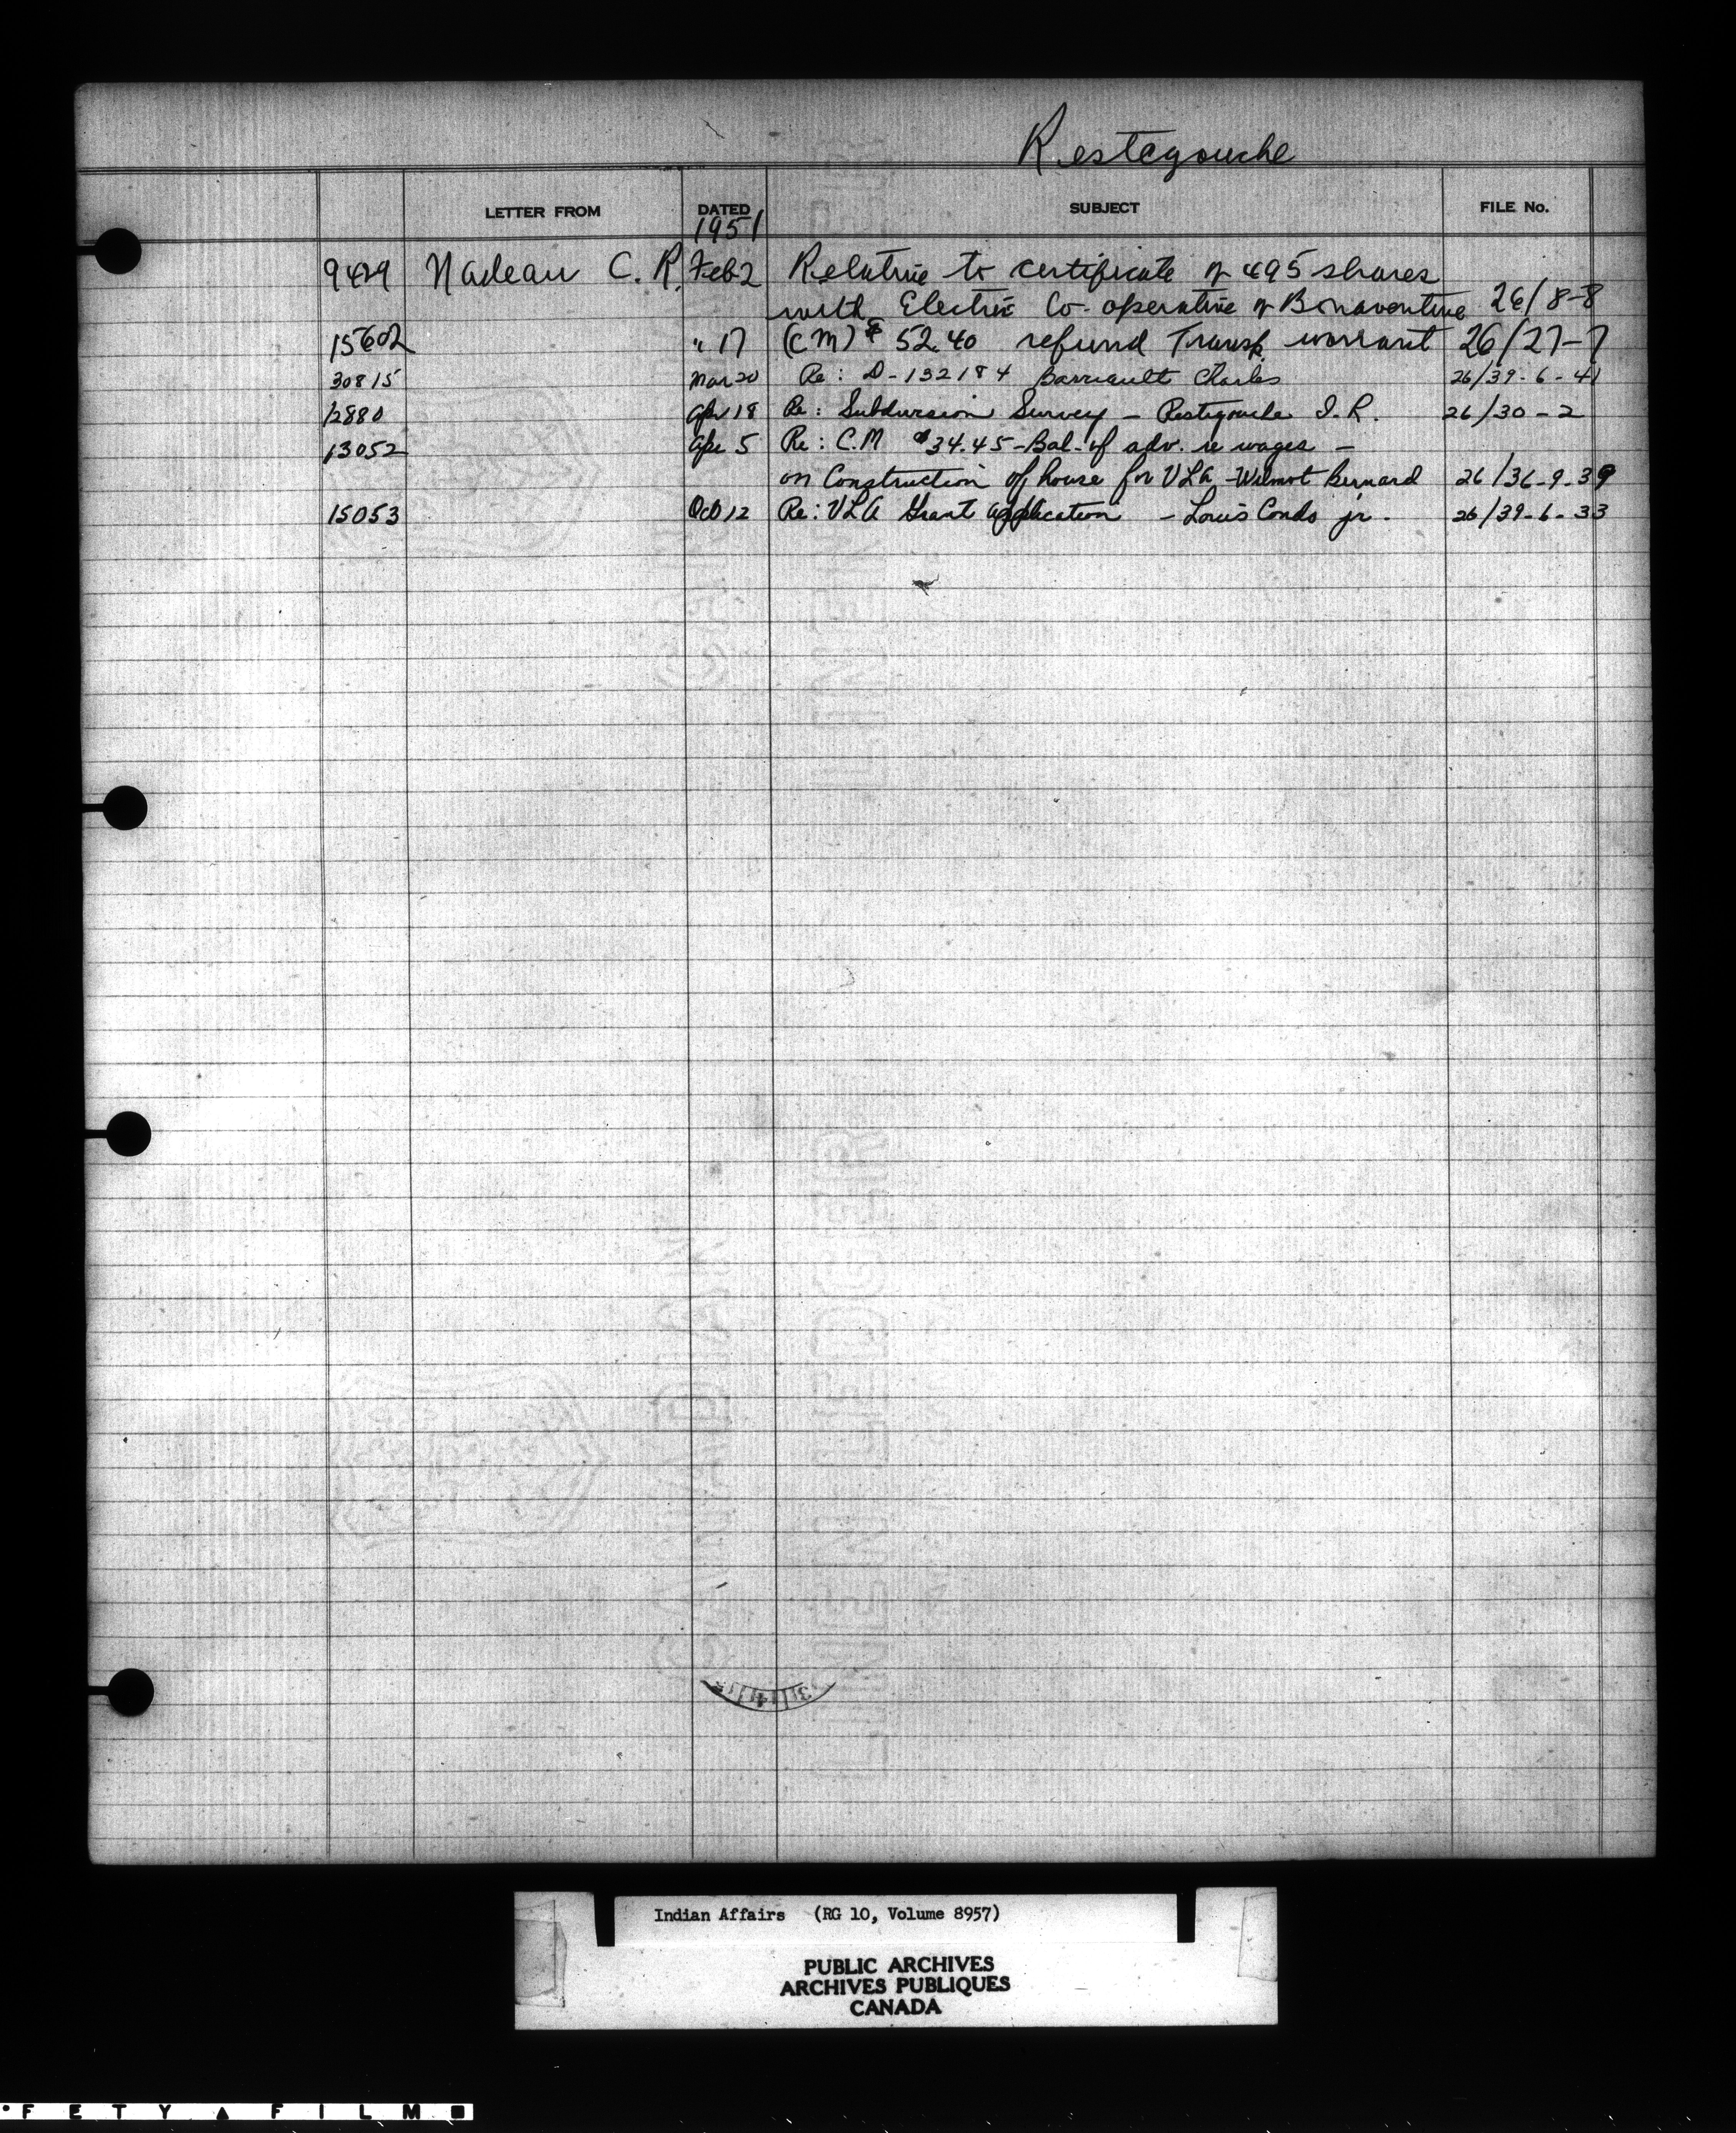 Restegouche
LETTER FROM DATED SUBJECT FILE No.
1951
9429 Nadeau C. R. Feb 2 Relative to certificate of 495 shares
with Electric Co-operative of Bonaventure 26/8-8
15602 " 17 (CM) $ 52.40 refund Transp. warrant 26/27-7
30815 Mar 20 Re: D-132184 Barriault Charles 26/39-6-41
12880 Apr 18 Re: Subdivision Survey - Restigouche I.R. 26/30-2
13052 Apr 5 Re: C.M $34.45 - Bal. of adv. re wages -
on Construction of house for VLA - Wilmot Bernard 26/36-9-39
15053 Oct 12 Re: VLA Grant application - Louis Condo jr. 26/39-6-33
Indian Affairs (RG 10, Volume 8957)
PUBLIC ARCHIVES
ARCHIVES PUBLIQUES
CANADA
FETY ▲ FILM ■